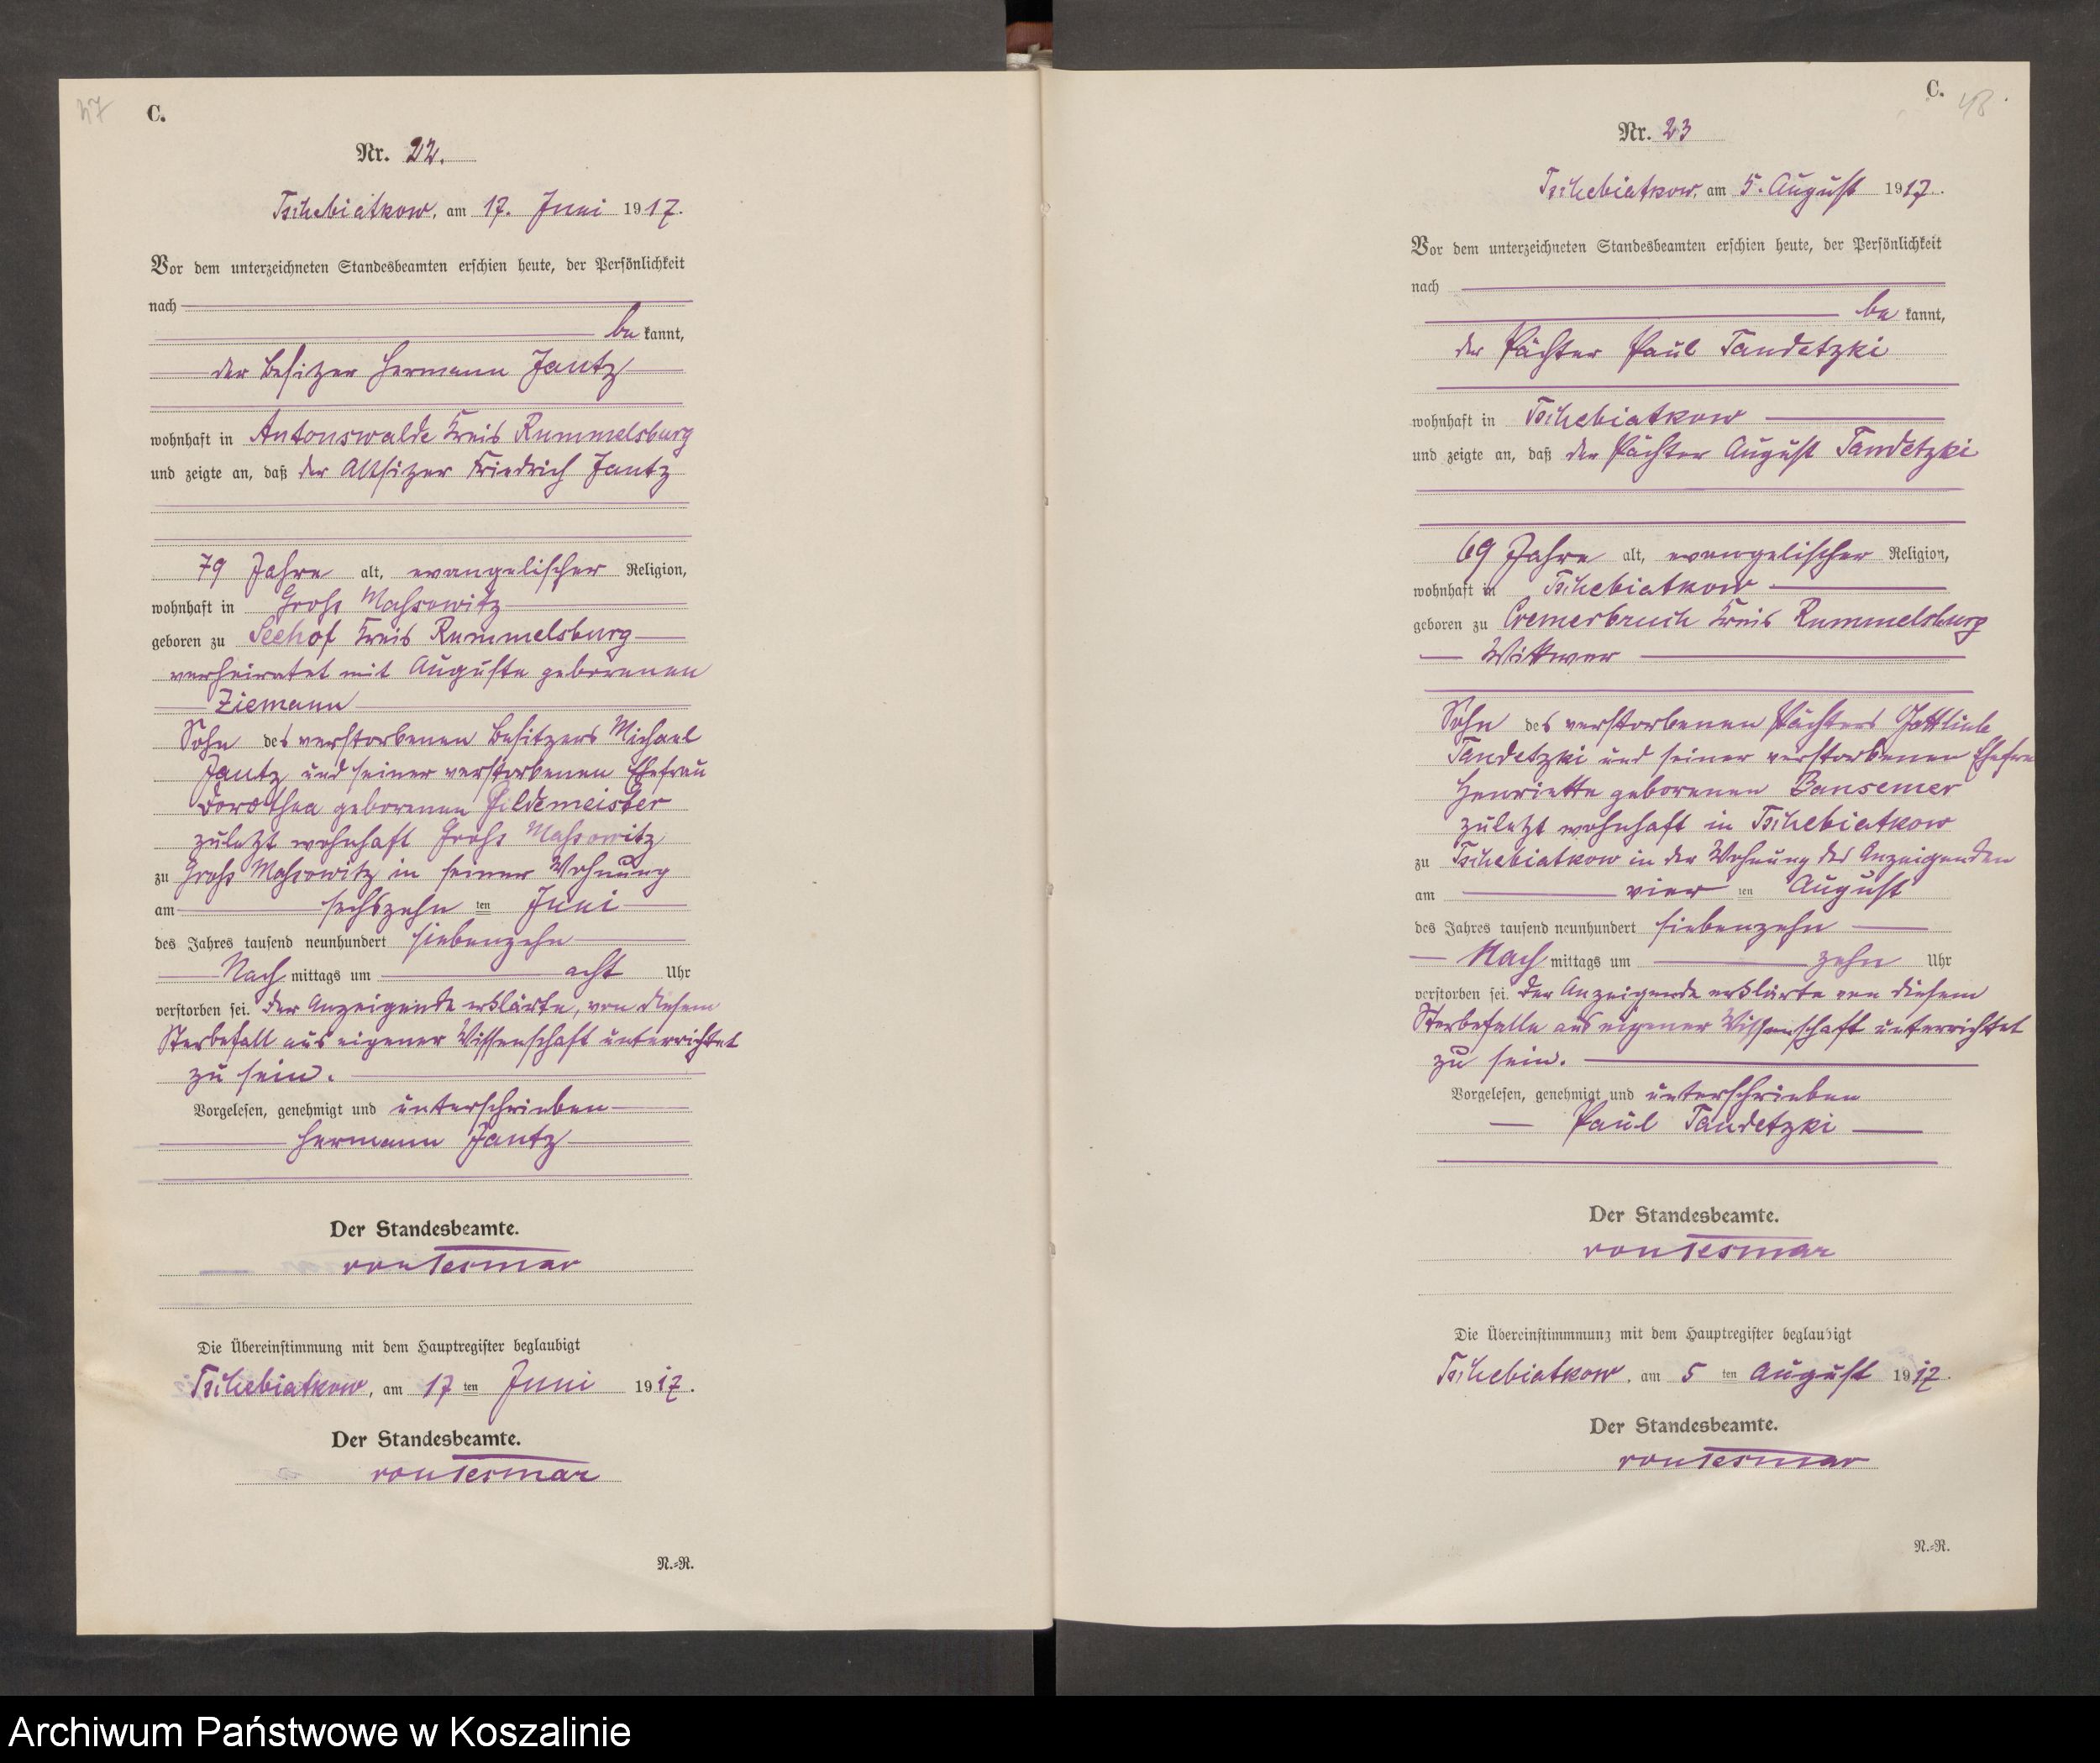 47
C.
Nr. 22.
Tschebiatkow, am 17. Juni 1917.
Vor dem unterzeichneten Standesbeamten erschien heute, der Persönlichkeit
nach
be kannt,
der Besitzer Hermann Jantz
wohnhaft in Antonswalde Kreis Rummelsburg
und zeigte an, daß der Altsitzer Friedrich Jantz
79 Jahre alt, evangelischer Religion,
wohnhaft in Gross Massowitz
geboren zu Seehof Kreis Rummelsburg
verheiratet mit Auguste geborenen
Ziemann
Sohn des verstorbenen Besitzers Michael
Jantz und seiner verstorbenen Ehefrau
Dorothea geborenen Hildemeister
zuletzt wohnhaft Gross Massowitz
zu Gross Massowitz in seiner Wohnung
am sechszehn ten Juni
des Jahres tausend neunhundert siebenzehn
Nach mittags um acht Uhr
verstorben sei. Der Anzeigende erklärte, von diesem
Sterbefall aus eigener Wissenschaft unterrichtet
zu sein.
Vorgelesen, genehmigt und unterschrieben
Hermann Jantz
Der Standesbeamte.
von Tesmar
Die Übereinstimmung mit dem Hauptregister beglaubigt
Tschebiatkow, am 17 ten Juni 1917.
Der Standesbeamte.
von Tesmar
N.=R.
C.
48
Nr. 23
Tschebiatkow, am 5. August 1917.
Vor dem unterzeichneten Standesbeamten erschien heute, der Persönlichkeit
nach
be kannt,
der Pächter Paul Tandetzki
wohnhaft in Tschebiatkow
und zeigte an, daß der Pächter August Tandetzki
69 Jahre alt, evangelischer Religion,
wohnhaft in Tschebiatkow
geboren zu Cremerbruch Kreis Rummelsburg
Wittwer
Sohn des verstorbenen Pächters Gottlieb
Tandetzki und seiner verstorbenen Ehefrau
Henriette geborenen Bansemer
zuletzt wohnhaft in Tschebiatkow
zu Tschebiatkow in der Wohnung des Anzeigenden
am vier ten August
des Jahres tausend neunhundert siebenzehn
Nach mittags um zehn Uhr
verstorben sei. Der Anzeigende erklärte von diesem
Sterbefalle aus eigener Wissenschaft unterrichtet
zu sein.
Vorgelesen, genehmigt und unterschrieben
Paul Tandetzki
Der Standesbeamte.
von Tesmar
Die Übereinstimmmung mit dem Hauptregister beglaubigt
Tschebiatkow, am 5 ten August 1917.
Der Standesbeamte.
von Tesmar
N.=R.
Archiwum Państwowe w Koszalinie